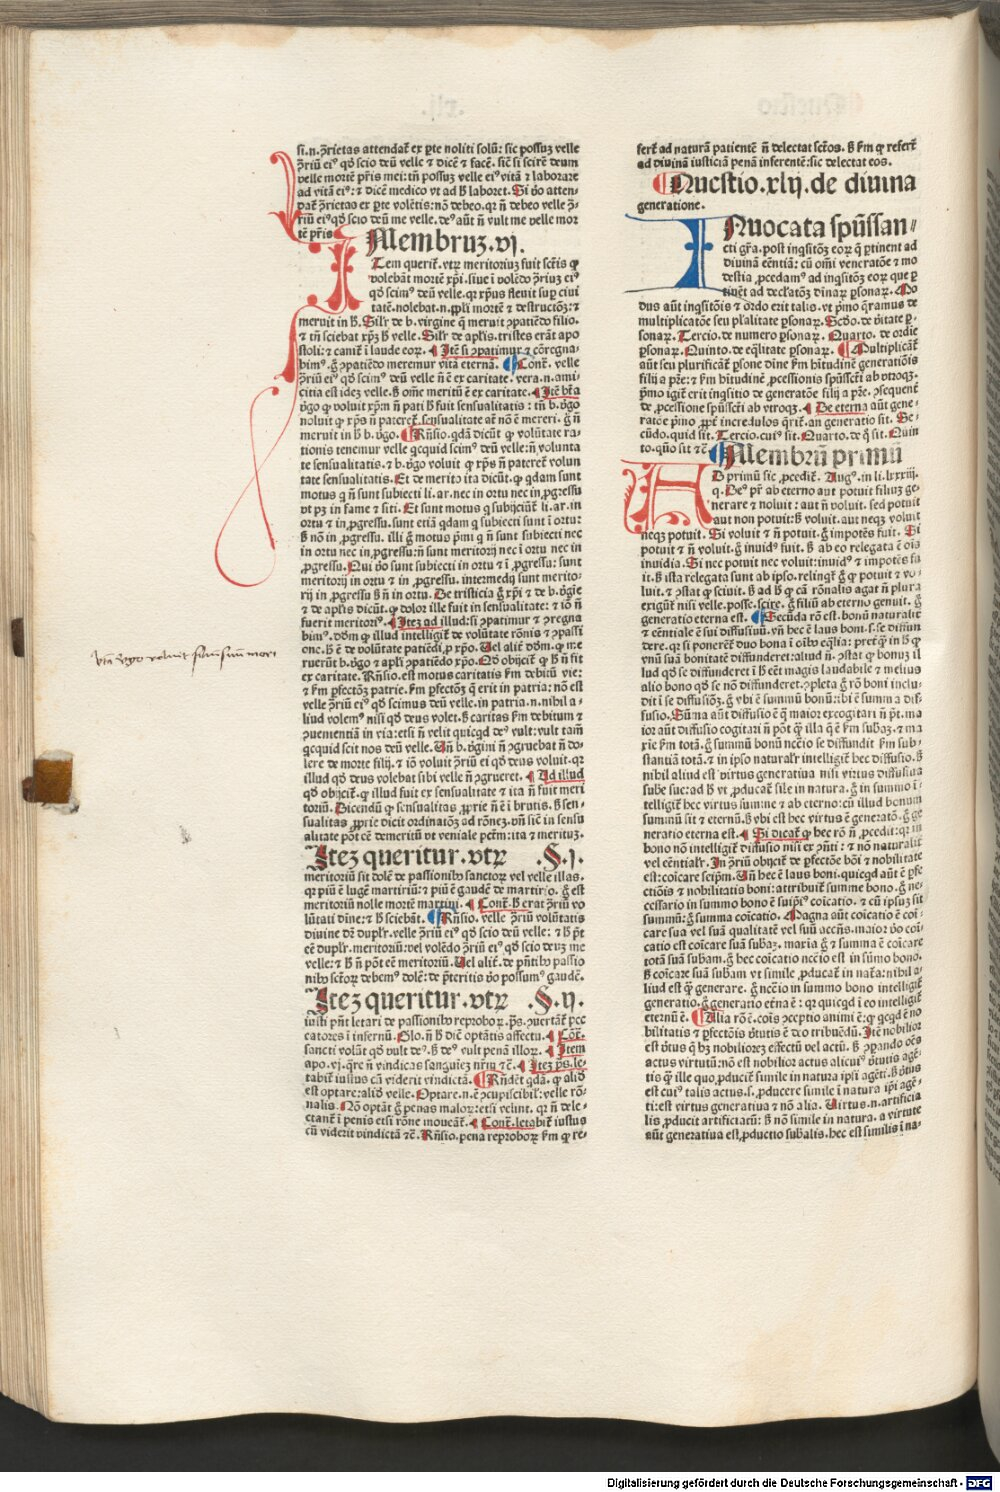 si.n.ꝯrietas attendat̄ ex ꝑte noliti solū: sic possuꝫ velle
ꝯriū eiꝰ qđ scio deū velle ⁊ dicē ⁊ facē. sic̄ si scirē deum
velle mortē pr̄is mei: tn̄ possuꝫ velle eiꝰ vitā ⁊ laborare
ad vitā eiꝰ: ⁊ dicē medico vt ad ꝭ laboret. Si ꝟo atten-
dat̄ ꝯrietas ex ꝑte volētis: nō debeo. qꝛ n̄ debeo velle ꝯ-
riū eiꝰ qđ scio deū me velle. deꝰ aūt n̄ vult me velle mor
tē pr̄is
Membruꝫ.vj.
Item querit̄. vtꝝ meritoriuꝫ fuit sctīs ꝙ
volebāt mortē xp̄i. siue i volēdo ꝯriuꝫ eiꝰ
qđ scimꝰ deū velle. qꝛ xp̄us fleuit suꝑ ciui
tatē. nolebat.n.pp̄li mortē ⁊ destructōꝫ: ⁊
meruit in ꝭ. Sil̄r de b. virgine ꝙ meruit ꝯpatiēdo filio.
⁊ tn̄ sciebat xp̄ꝫ ꝭ velle. Sil̄r de apl̄is. tristes erāt apo
stoli: ⁊ canit̄ i laude eoꝝ. Itē si ꝯpatimur ⁊ cōregna-
bimꝰ. ḡ ꝯpatiēdo meremur vitā eternā. Cont̄. velle
ꝯriū eiꝰ qđ scimꝰ deū velle n̄ ē ex caritate. vera.n.ami
citia est ideꝫ velle. ꝭ om̄e meritū ē ex caritate. Itē bt̄a
ꝟgo ꝙ voluit xp̄m n̄ pati ꝭ fuit sensualitatis: tn̄ b. ꝟgo
noluit ꝙ xp̄s n̄ pateret̄. sensualitate at̄ nō ē mereri. ḡ n̄
meruit in ꝭ b. ꝟgo. Rn̄sio. qdā dicūt ꝙ volūtate ra-
tionis tenemur velle qcquid scimꝰ deū velle: n̄ volunta
te sensualitatis. ⁊ b. ꝟgo voluit ꝙ xp̄s n̄ pateret̄ volun
tate sensualitatis. Et de merito ita dicūt. ꝙ qdam sunt
motus q n̄ sunt subiecti li.ar.nec in ortu nec in ꝓgressu
vt pꝫ in fame ⁊ siti. Et sunt motus q subijciūt̄ li.ar.in
ortu ⁊ in ꝓgressu. sunt etiā qdam q subiecti sunt i ortu:
ꝭ nō in ꝓgressu. illi ḡ motus pͥmi q n̄ sunt subiecti nec
in ortu nec in ꝓgressu: n̄ sunt meritorij nec i ortu nec in
ꝓgressu. Qui ꝟo sunt subiecti in ortu ⁊ i ꝓgressu: sunt
meritorij in ortu ⁊ in ꝓgressu. intermedij sunt merito-
rij in ꝓgressu ꝭ n̄ in ortu. De tristicia ḡ xp̄i ⁊ de b. ꝟgīe
⁊ de apl̄is dicūt. ꝙ dolor ille fuit in sensualitate: ⁊ iō n̄
fuerit meritoriꝰ. Iteꝫ ad illud: si ꝯpatimur ⁊ ꝯregna
bimꝰ. dōm ꝙ illud intelligit̄ de volūtate rōnis ⁊ ꝯpassi
one. ꝭ ē de volūtate patiēdi ꝓ xp̄o. Uel alit̄ dōm. ꝙ me
ruerūt b. ꝟgo ⁊ apl̄i ꝯpatiēdo xp̄o. Qđ obijcit̄ ꝙ ꝭ n̄ fit
ex caritate. Rn̄sio. est motus caritatis ẜm debitū vie:
⁊ ẜm ꝑfectōꝫ patrie. ẜm ꝑfectōꝫ q erit in patria: nō est
velle ꝯriū eiꝰ qđ scimus deū velle. in patria.n.nihil a-
liud volemꝰ nisi qđ deus volet. ꝭ caritas ẜm debitum ⁊
ꝯuenientiā in via: etsi n̄ velit quicqd deꝰ vult: vult tam̄
qcquid scit nos deū velle. Un̄ b. ꝟgini n̄ ꝯgruebat n̄ do-
lere de morte filij. ⁊ iō voluit ꝯriū eiꝰ qđ deus voluit. qꝛ
illud qđ deus volebat sibi velle n̄ ꝯgrueret. Ad illud
qđ obijcit̄. ꝙ illud fuit ex sensualitate ⁊ ita n̄ fuit meri
toriū. Dicendū ꝙ sensualitas ꝓprie n̄ ē i brutis. ꝭ sen-
sualitas ꝓprie dicit ordinatōꝫ ad rōneꝫ. vn̄ sic̄ in sensu
alitate pōt eē demeritū vt veniale pct̄m: ita ⁊ merituꝫ.
Iteꝫ queritur.vtꝝ .§.j.
meritoriū sit dolē de passionibꝰ sanctoꝝ vel velle illas.
qꝛ piū ē lugē martiriū: ⁊ piū ē gaudē de martirio. ḡ est
meritoriū nolle mortē martini. Cont̄. ꝭ erat ꝯriū vo
lūtati dīne: ⁊ ꝭ sciebāt. Rn̄sio. velle ꝯriū volūtatis
diuine dr̄ dupl̄r. velle ꝯriū eiꝰ qđ scio deū velle: ⁊ ꝭ pt̄
eē dupl̄r. meritoriū: vel volēdo ꝯriū eiꝰ qđ scio deuꝫ me
velle: ⁊ ꝭ n̄ pōt eē meritoriū. Uel alit̄. de pn̄tibꝰ passio
nibꝰ sctōꝝ debemꝰ dolē: de pͥteritis ꝟo possumꝰ gaudē.
Iteꝫ queritur.vtꝝ .§.ij.
iusti pn̄t letari de passionibꝰ reproboꝝ. ps̄. ꝯuertāt̄ pec
catores i infernū. Glo. n̄ ꝭ dic̄ optātis affectu. Cōt̄.
sancti volūt qđ vult deꝰ. ꝭ deꝰ vult penā illoꝝ. Item
apo.vj. qr̄e n̄ vindicas sanguineꝫ nr̄m ⁊c̄. Iteꝫ ps̄. le-
tabit̄ iustus cū viderit vindictā. Rn̄dēt qdā. ꝙ aliđ
est optare: aliđ velle. Optare.n.ē ꝯcupiscibil̄: velle rō-
nalis. Nō optāt ḡ penas maloꝝ: etsi velint. qꝛ n̄ dele-
ctant̄ i penis etsi rōne moueāt̄. Cont̄. letabit̄ iustus
cū viderit vindictā ⁊c̄. Rn̄sio. pena reproboꝝ ẜm ꝙ re-
fert̄ ad naturā patientē n̄ delectat sctōs. ꝭ ẜm ꝙ refert̄
ad diuinā iusticiā penā inferentē: sic delectat eos.
Questio.xlij.de diuina
generatione.
INuocata spūssan-
cti gr̄a. post inqsitōꝫ eoꝝ q ꝑtinent ad
diuinā eēntiā: cū om̄i veneratōe ⁊ mo
destia ꝓcedamꝰ ad inqsitōꝫ eoꝝ que ꝑ
tinēt ad declatōꝫ dīnaꝝ ꝑsonaꝝ. Mo
dus aūt inqsitōis ⁊ ordo erit talis. vt pͥmo qramus de
multiplicatōe seu pl̄alitate ꝑsonaꝝ. Scđo. de ꝟitate ꝑ-
sonaꝝ. Tercio. de numero ꝑsonaꝝ. Quarto. de ordīe
ꝑsonaꝝ. Quinto. de eq̄litate ꝑsonaꝝ. Multiplicat̄
aūt seu plurificat̄ ꝑsone dīne ẜm ꝭitudinē generatiōis
filij a pr̄e: ⁊ ẜm ꝭitudinē ꝓcessionis spūssctī ab vtroqꝫ.
pͥmo igit̄ erit inqsitio de generatōe filij a pr̄e. ꝯsequent̄
de ꝓcessione spūssctī ab vtroqꝫ. De eterna aūt gene-
ratōe pͥmo ꝓpt̄ incredulos qrit̄. an generatio sit. Se-
cūdo. quid sit. Tercio. cuiꝰ sit. Quarto. de q sit. Quin
to. qūo sit ⁊c̄
Membrū primū
AD primū sic ꝓcedit̄. Augꝰ. in li.lxxxiij.
q. Deꝰ pr̄ ab eterno aut potuit filiuꝫ ge-
nerare ⁊ noluit: aut n̄ voluit. sed potuit
aut non potuit: ꝭ voluit. aut neqꝫ voluit
neqꝫ potuit. Si voluit ⁊ n̄ potuit. ḡ impotēs fuit. Si
potuit ⁊ n̄ voluit. ḡ inuidꝰ fuit. ꝭ ab eo relegata ē oīs
inuidia. Si nec potuit nec voluit: inuidꝰ ⁊ impotēs fu
it. ꝭ ista relegata sunt ab ipso. relinqt̄ ḡ ꝙ potuit ⁊ vo-
luit. ⁊ ꝯstat ꝙ sciuit. ꝭ ad ꝭ ꝙ cā rōnalis agat n̄ plura
exigūt̄ nisi velle. posse. scire. ḡ filiū ab eterno genuit. ḡ
generatio eterna est. Secūda rō est. bonū naturalit̄
⁊ eēntiale ē sui diffusiuū. vn̄ hec ē laus boni. se diffun
dere. qꝛ si ponerēt̄ duo bona i oībꝰ eq̄lia: pret̄qꝫ in ꝭ ꝙ
vnū suā bonitatē diffunderet: aliud n̄. ꝯstat ꝙ bonuꝫ il
lud qđ se diffunderet i ꝭ eēt magis laudabile ⁊ melius
alio bono qđ se nō diffunderet. ꝯpleta ḡ rō boni inclu-
dit i se diffusiōꝫ. ḡ vbi ē summū bonū: ibi ē summa dif-
fusio. Sūma aūt diffusio ē q maior excogitari n̄ pt̄. ma
ior aūt diffusio cogitari n̄ pōt qꝫ illa q ē ẜm subaꝫ. ⁊ ma
xie ẜm totā. ḡ summū bonū nccīo se diffundit ẜm sub-
stantiā totā. ⁊ in ipso natural̄r intelligit̄ hec diffusio. ꝭ
nihil aliud est virtus generatiua nisi virtus diffusiua
sube sue: ad ꝭ vt ꝓducat̄ sile in natura. ḡ in summo i-
telligit̄ hec virtus summe ⁊ ab eterno: cū illud bonum
summū sit ⁊ eternū. ꝭ vbi est hec virtus ē generatō. ḡ ge
neratio eterna est. Si dicat̄ ꝙ hec rō n̄ ꝓcedit: qꝛ in
bono nō intelligit̄ diffusio nisi ex ꝯn̄ti: ⁊ nō naturalit̄
vel eēntial̄r. In ꝯriū obijcit̄ de ꝑfectōe boni ⁊ nobilitate
est: coīcare seipm̄. Un̄ hec ē laus boni. quicqd aūt ē ꝑfe
ctiōis ⁊ nobilitatis boni: attribuit̄ summe bono. ḡ ne-
cessario in summo bono ē suipiꝰ coīcatio. ⁊ cū ipsuꝫ sit
summū: ḡ summa coīcatio. Magna aūt coīcatio ē coī-
care sua vel suā qualitatē vel suū accn̄s. maior ꝟo coī-
catio est coīcare suā subaꝫ. maxīa ḡ ⁊ summa ē coīcare
totā suā subam. ḡ hec coīcatio nccīo est in sūmo bono.
ꝭ coīcare suā subam vt simile ꝓducat̄ in nat̄a: nihil a-
liud est qꝫ generare. ḡ nccīo in summo bono intelligit̄
generatio. ḡ generatio et̄na ē: qꝛ quicqd i eo intelligit̄
eternū ē. Alia rō ē. coīs ꝯceptio animi ē: ꝙ qcqd ē no
bilitatis ⁊ ꝑfectōis ꝟtutis ē deo tribuēdū. Itē nobilior
est ꝟtus q hꝫ nobilioreꝫ effectū vel actū. ꝭ ꝯꝑando oēs
actus virtutū: nō est nobilior actus alicuiꝰ ꝟtutis agē-
tis qꝫ ille quo ꝓducit̄ simile in natura ipsi agēti. ꝭ ꝟtus
est cuiꝰ talis actus.s. ꝓducere simile i natura ipi agē-
ti: est virtus generatiua ⁊ nō alia. Uirtus.n.artificia
lis ꝓducit artificiatū: ꝭ nō simile in natura. a virtute
aūt generatiua est ꝓductio subalis. hec est similis i na-
Digitalisierung gefördert durch die Deutsche Forschungsgemeinschaft - DFG